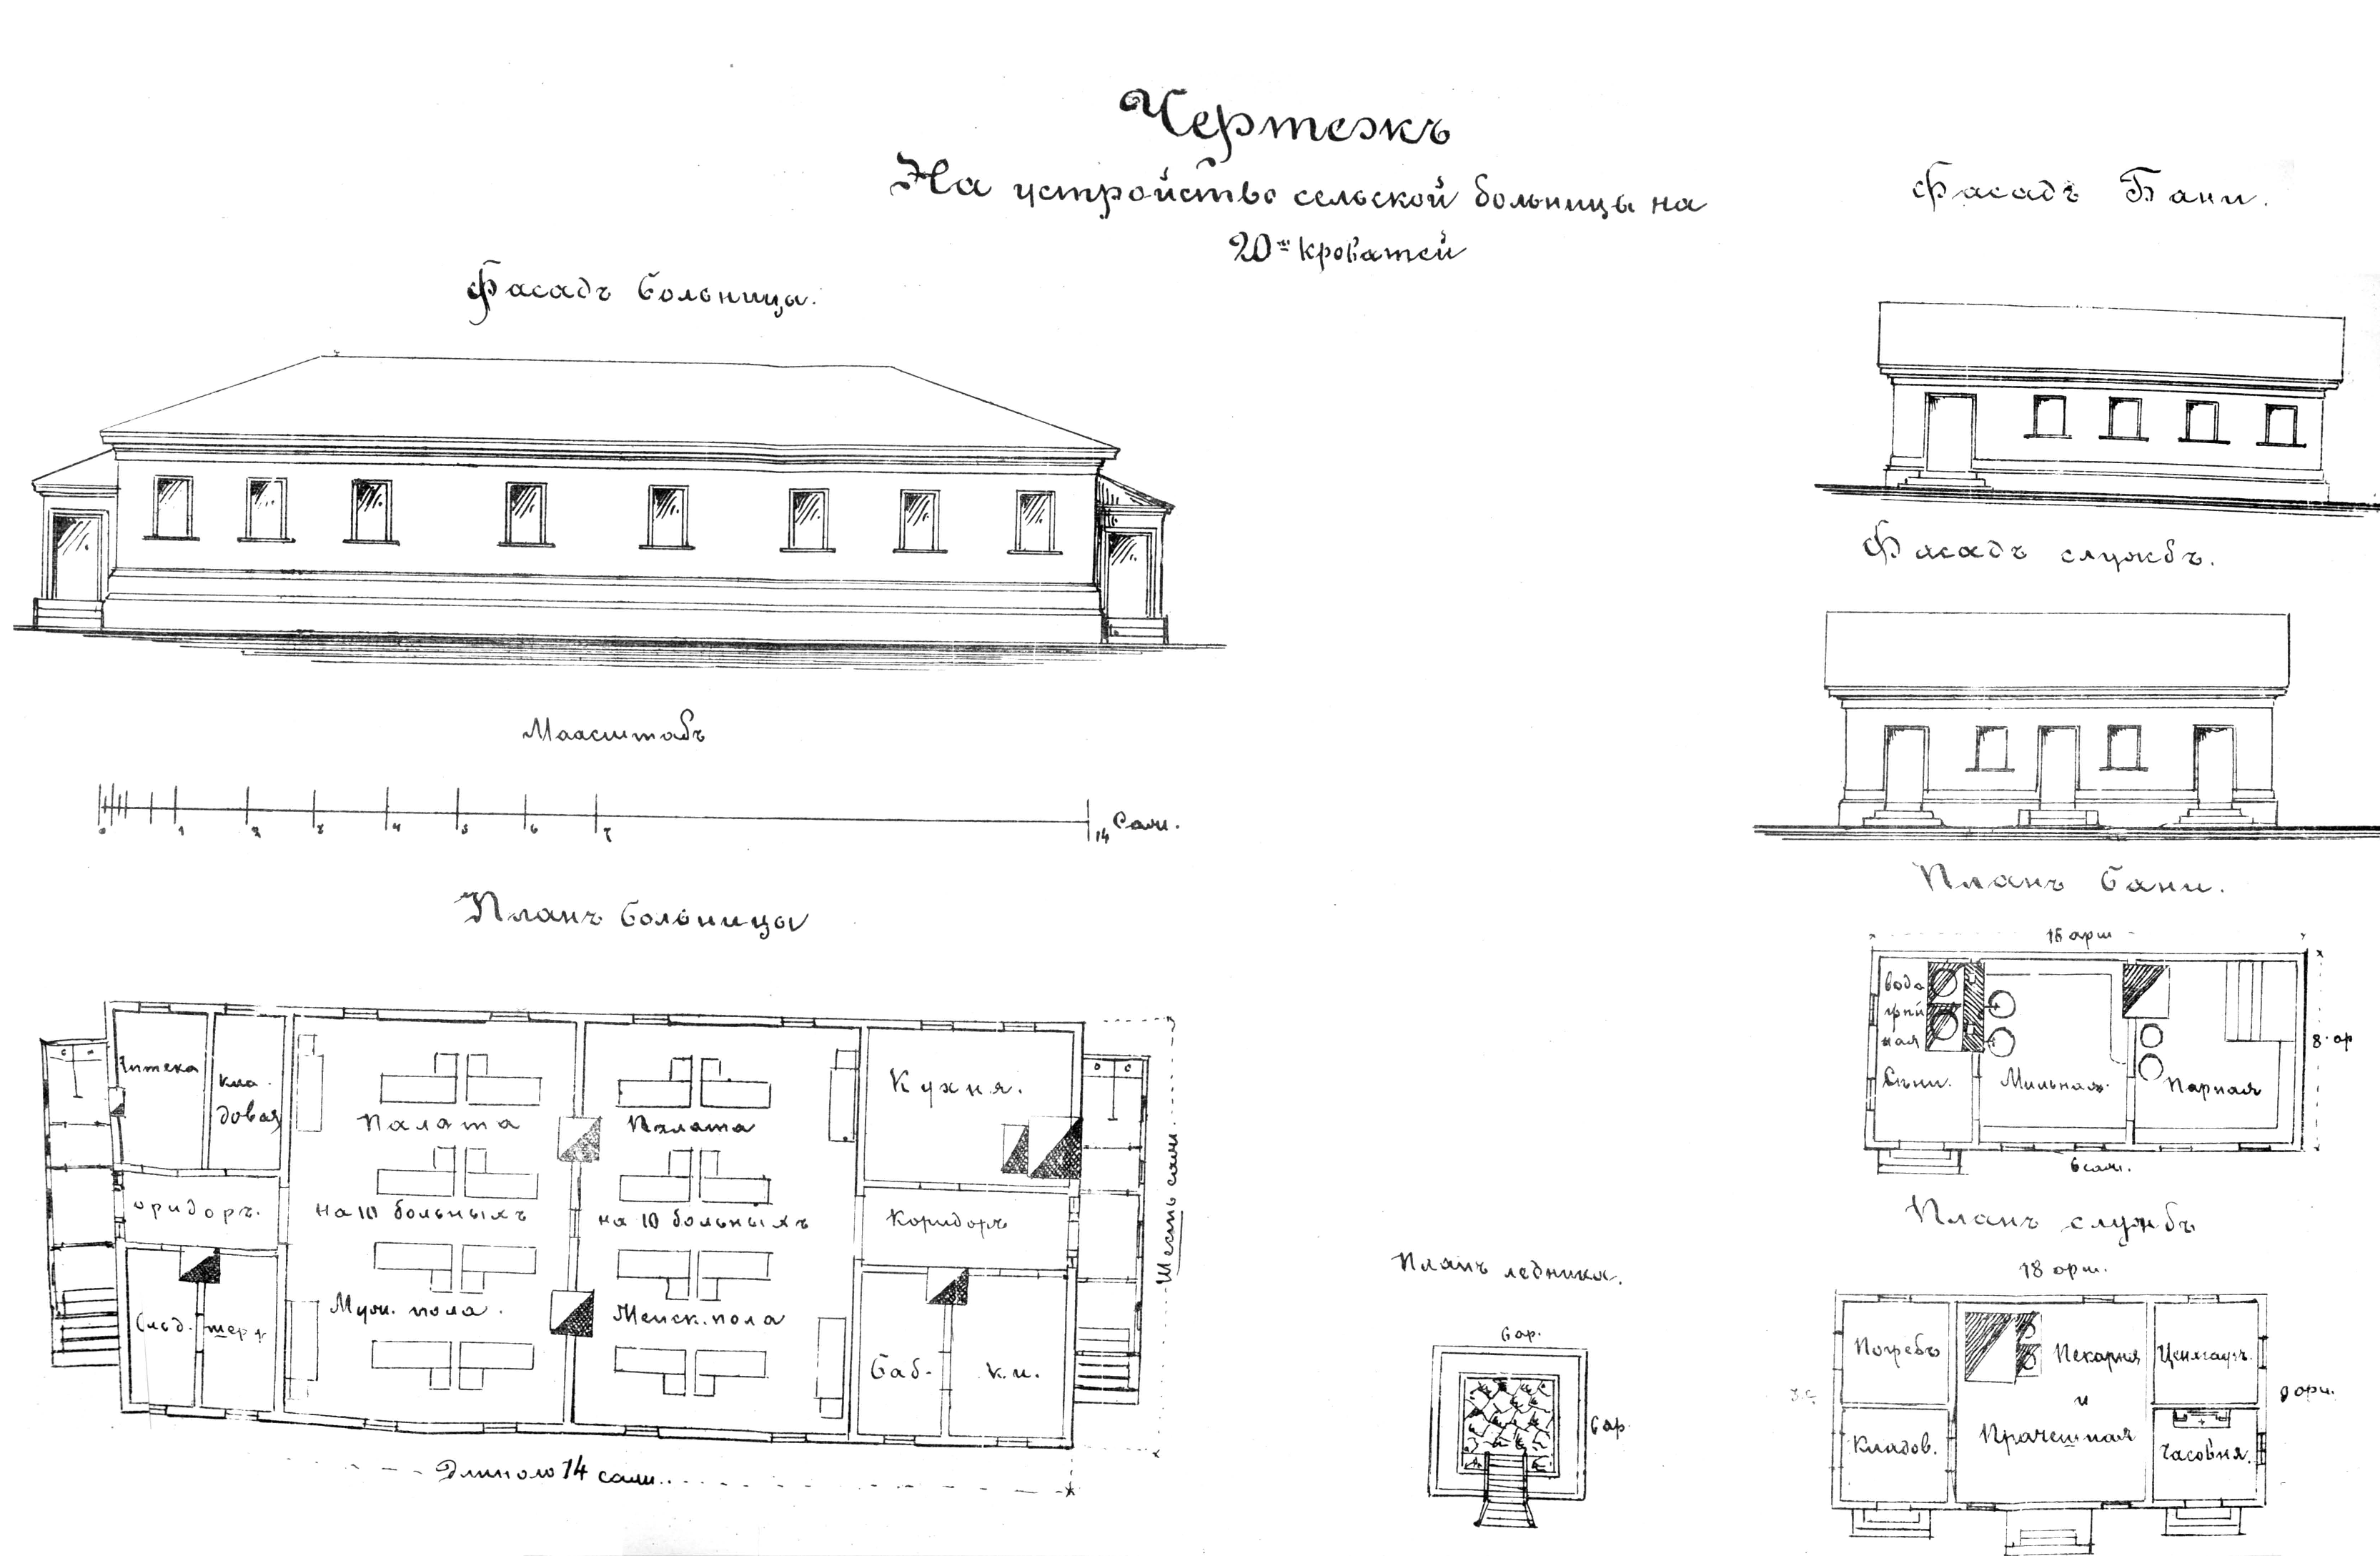 Чертежъ
На устройство сельской больницы на
20ть кроватей
Фасадъ больницы.
Фасадъ Бани.
Фасадъ службъ.
Маасштабъ
0 1 2 3 4 5 6 7 14 Саж.
Планъ больницы
Аптека
кла-
довая
Палата
на 10 больныхъ
Муж. пола.
Палата
на 10 больныхъ
Женск. пола
Кухня.
Коридоръ
оридоръ.
Баб-
ки.
Шесть саж.
Длиною 14 саж.
Планъ бани.
16 арш
водо
грѣй
ная
Сѣни.
Мыльная.
Парная
8 ар
6 саж.
Планъ ледника.
6 ар.
6 ар.
Планъ службъ
18 арш.
Погребъ
Кладов.
Пекарня
и
Прачешная
Цейхгаузъ.
Часовня.
арш.